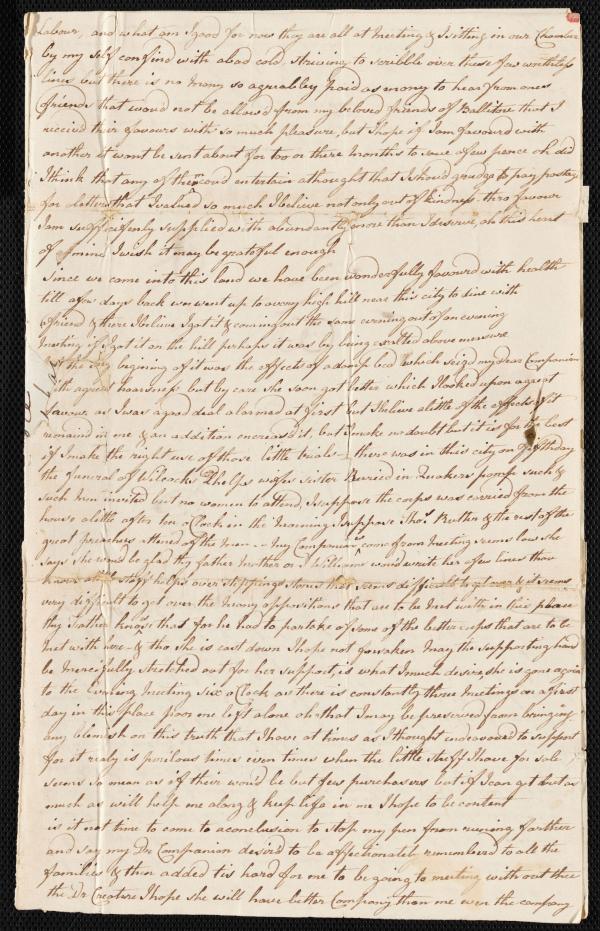 Labour, and what am I good for now they are all at meeting & I sitting in our Chamber
by my self confind with a bad cold striving to scribble over these few worthless
lines but there is no mony so agreabley paid as mony to hear from ones
friends that woud not be allowd from my beloved friends of Ballitore that I
receivd their favours with so much pleasure, but I hope if I am favourd with
another it wont be sent about for too or there months to save a few pence oh did
I think that any of them coud entertain a thought that I should grudge to pay postage
for a letter that I valued so much I believe not only out of kindness thro favour
I am sufficifenly supplied with abundantly more than I deserve, oh this heart
of mine I wish it may be grateful enough
Since we came into this land we have been wonderfully favourd with health
till a few days back we went up to a very high hill near this city to dine with
a friend & there I belive I got it & coming out the same evening out of an evening
meeting if I got it on the hill perhaps it was by being exalted above measure
the begining of it was the effects of a damp bed which seizd my dear Companion
with a great hoarsness but by care she soon got better which I looked upon a great
favour as I was a good deal alarmed at first but I belive a little of the effects of it
remaind in me & an addition encreasd it, but I make no doubt but it is for the best
if I make the right use of those little trials — there was in this city on fifthday
the funeral of Wilcocks Phelps wifes sister Buried in Quakers pomp such &
such men invited but no women to attend, I suppose the corps was carried from the
house a little after ten o Clock in the morning I suppose Thos. Rutter & the rest of the
great preachers attend of the men — my Companion come from meeting seems low she
says she would be glad thy father mother or Williams woud write her a few lines thou
knows steps helps over stepping stones that seems difficult to get over & it seems
very difficult to get over the many oppositions that are to be met with in this place
thy Father knows that for he had to partake of some of the bitter cups that are to be
met with here & tho she is cast down I hope not forsaken may the supporting hand
be mercifully stretched out for her support, is what I much desire, she is gone again
to the Evening meeting Six o Clock as there is constantly three meetings on a first
day in this place poor me left alone oh that I may be preserved from bringing
any blemish on this truth that I have at times as I thought endeavoured to support
for it realy is perilous times even times when the little stuff I have for sale
seems so mean as if their would be but few purchasers but if I can get but as
much as will help me along & keep life in me I hope to be content
is it not time to come to a conclusion to stop my pen from runing farther
and say my Dr Companion desird to be affectionately rememberd to all the
families & then added tis hard for me to be going to meeting with out thee
the Dr Creature I hope she will have better Company than me even the company